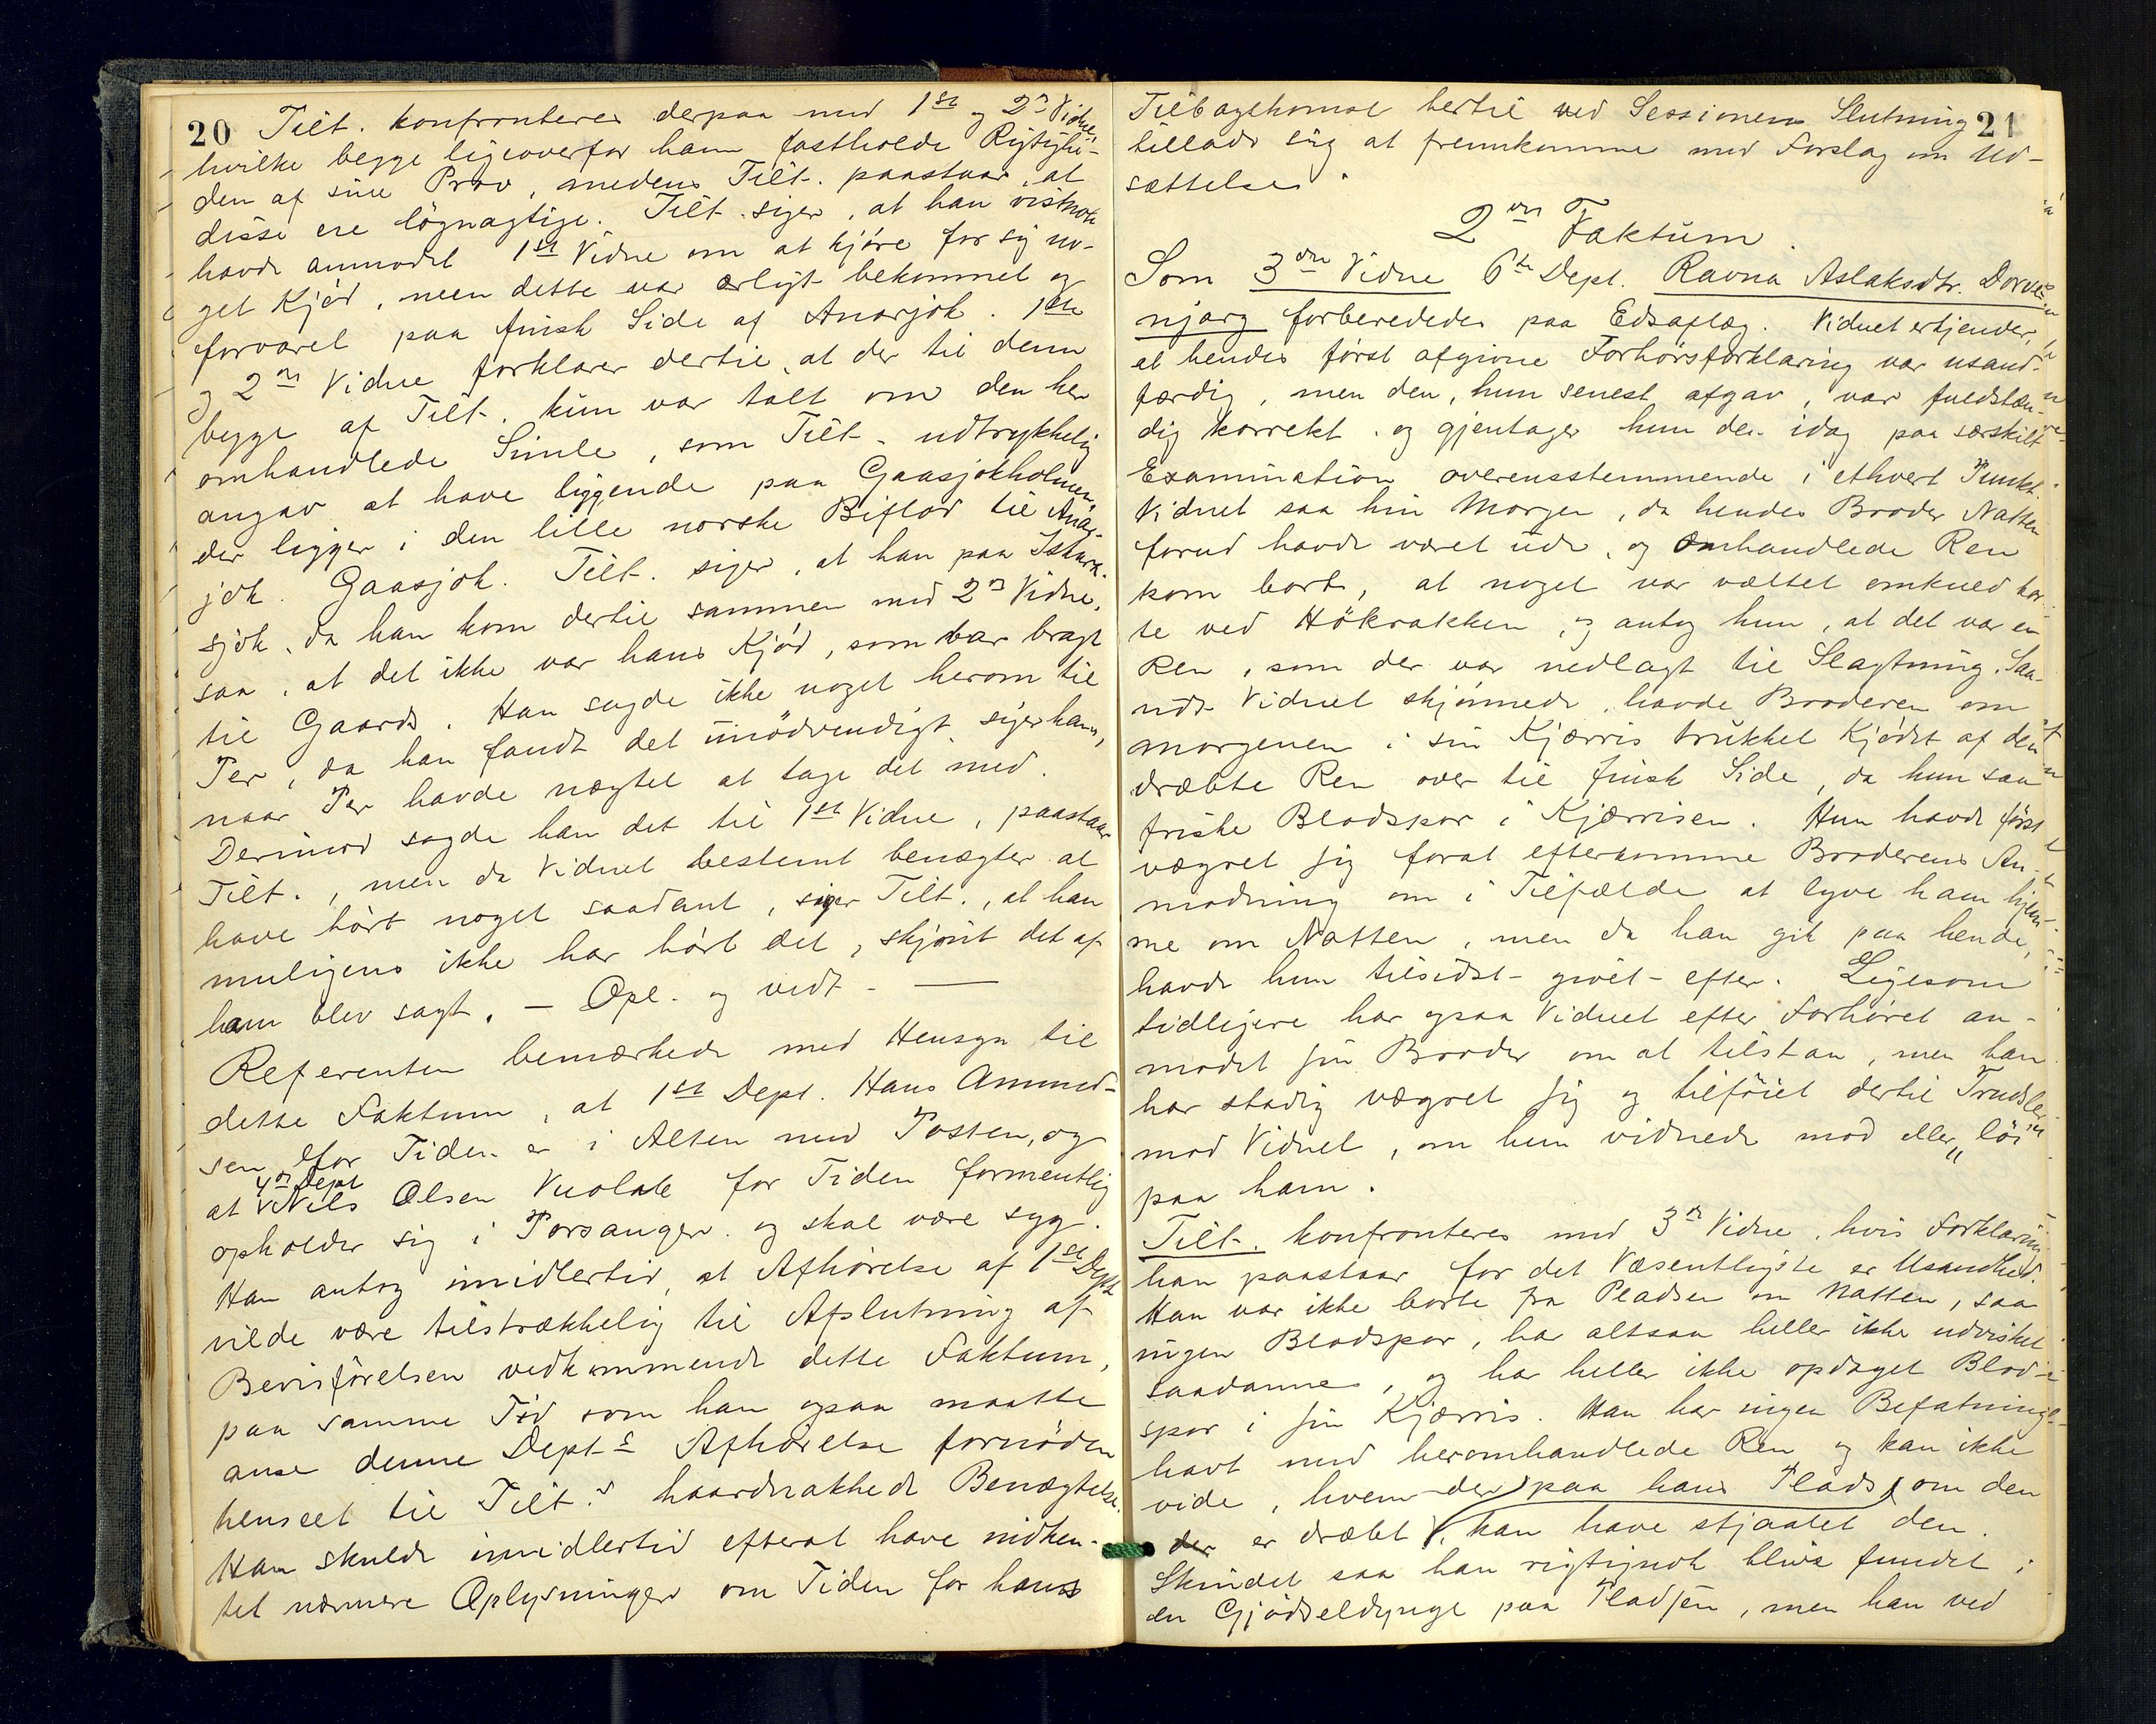 20
Tilt. konfronteres derpaa med 1ste og 2n Vidne,
hvilke begge ligeoverfor ham fastholde Rigtighe-
den af sine Prov, medens Tilt. paastaar, at
disse ere løgnagtige. Tilt. siger, at han vistnok
havde anmodet 1ste Vidne om at kjøre for sig no-
get Kjød, men dette var ærligt bekommet og
forvaret paa finsk Side af Anarjok. 1ste
og 2n Vidne forklarer dertil, at der til dem
begge af Tilt. kun var talt om den her
omhandlede Simle, som Tilt. udtrykkelig
angav at have liggende paa Gaasjokholmen,
der ligger i den lille norske Biflod til Anar-
jok. Gaasjok. Tilt. siger, at han paa Iskuras-
sjok, da han kom dertil sammen med 2n Vidne,
saa, at det ikke var hans Kjød, som var bragt
til Gaards. Han sagde ikke noget herom til
Per, da han fandt det unødvendigt, siger han,
naar Per havde nægtet at tage det med.
Derimod sagde han det til 1ste Vidne, paastaar
Tilt., men da Vidnet bestemt benægter at
have hørt noget saadant, siger Tilt., at han
muligens ikke har hørt det, skjønt det af
ham blev sagt. — Opl. og vedt. —
Referenten bemærkede med Hensyn til
dette Faktum, at 1ste Dept. Hans Ammund-
sen for Tiden er i Alten med Posten, og
4n Dept
at Nils Olsen Vuolab for Tiden formentlig
opholder sig i Porsanger og skal være syg.
Han antog imidlertid, at Afhørelse af 1ste Dept
vilde være tilstrækkelig til Afslutning af
Bevisførelsen vedkommende dette Faktum,
paa samme Tid som han ogsaa maatte
anse denne Depts Afhørelse fornøden
henseet til Tilts haardnakkede Benægtelse.
Han skulde imidlertid efterat have indhen-
tet nærmere Oplysninger om Tiden for hans
21
Tilbagekomst hertil ved Sessionens Slutning
tillade sig at fremkomme med Forslag om Ud-
sættelse.
2den Faktum.
Som 3die Vidne 6te Dept. Ravna Aslaksdtr. Dorve-
njarg forberededes paa Edsaflæg. Vidnet erkjender,
at hendes først afgivne Forhørsforklaring var usand-
færdig, men den, hun senest afgav, var fuldstæn-
dig korrekt og gjentager hun den idag paa særskilt
Examination overensstemmende i ethvert Punkt.
Vidnet saa hin Morgen, da hendes Broder Natten
forud havde været ude, og omhandlede Ren
kom bort, at noget var væltet omkuld bor-
te ved Høkrakken, og antog hun, at det var en
Ren, som der var nedlagt til Slagtning. Saa-
vidt Vidnet skjønnede, havde Broderen om
morgenen i sin Kjærris trukket Kjødet af den
dræbte Ren over til finsk Side, da hun saa
friske Blodspor i Kjærrisen. Hun havde først
vægret sig forat efterkomme Broderens An-
modning om i Tilfælde at lyve ham hjem-
me om Natten, men da han gik paa hende,
havde hun tilsidst givet efter. Ligesom
tidligere har ogsaa Vidnet efter Forhøret an-
modet sin Broder om at tilstaa, men han
har stadig vægret sig og tilføiet dertil Trudsler
mod Vidnet, om hun vidnede mod eller „løi“
paa ham.
Tilt. konfronteres med 3n Vidne, hvis Forklaring
han paastaar for det Væsentligste er Usandhed.
Han var ikke borte fra Pladsen om Natten, saa
ingen Blodspor, har altsaa heller ikke udvisket
saadanne, og har heller ikke opdaget Blod-
spor i sin Kjærris. Han har ingen Befatning
havt med heromhandlede Ren og kan ikke
vide, hvem der paa hans Plads, om den
der er dræbt, kan have stjaalet den.
Skindet saa han rigtignok blive fundet i
en Gjødseldynge paa Pladsen, men han ved